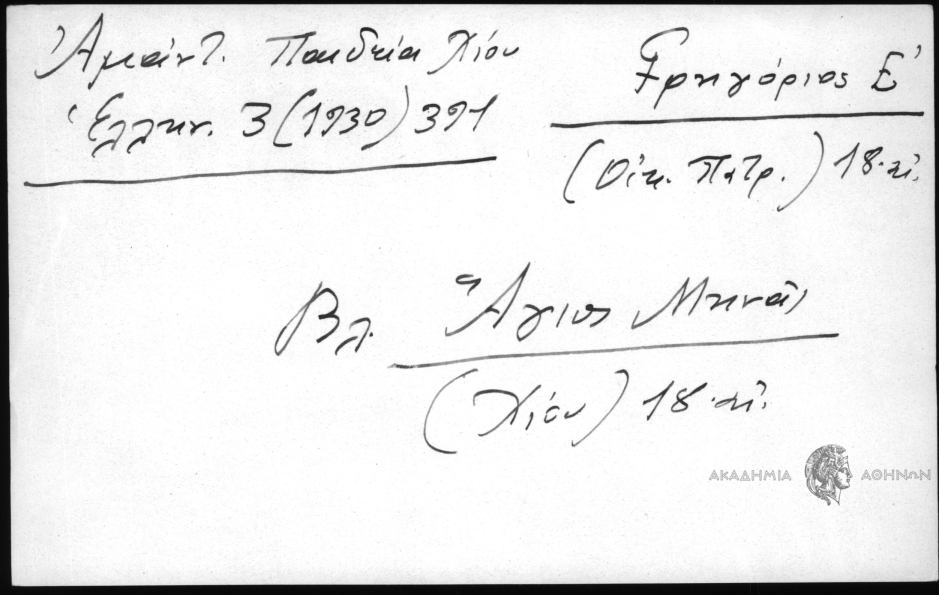 Ἀμάντ. Παιδεία Χίου
Ἑλλην. 3 (1930) 391
Γρηγόριος Ε'
(Οἰκ. Πατρ.) 18. αἰ.
Βλ. Ἅγιος Μηνᾶς
(Χίου) 18. αἰ.
ΑΚΑΔΗΜΙΑ ΑΘΗΝΩΝ